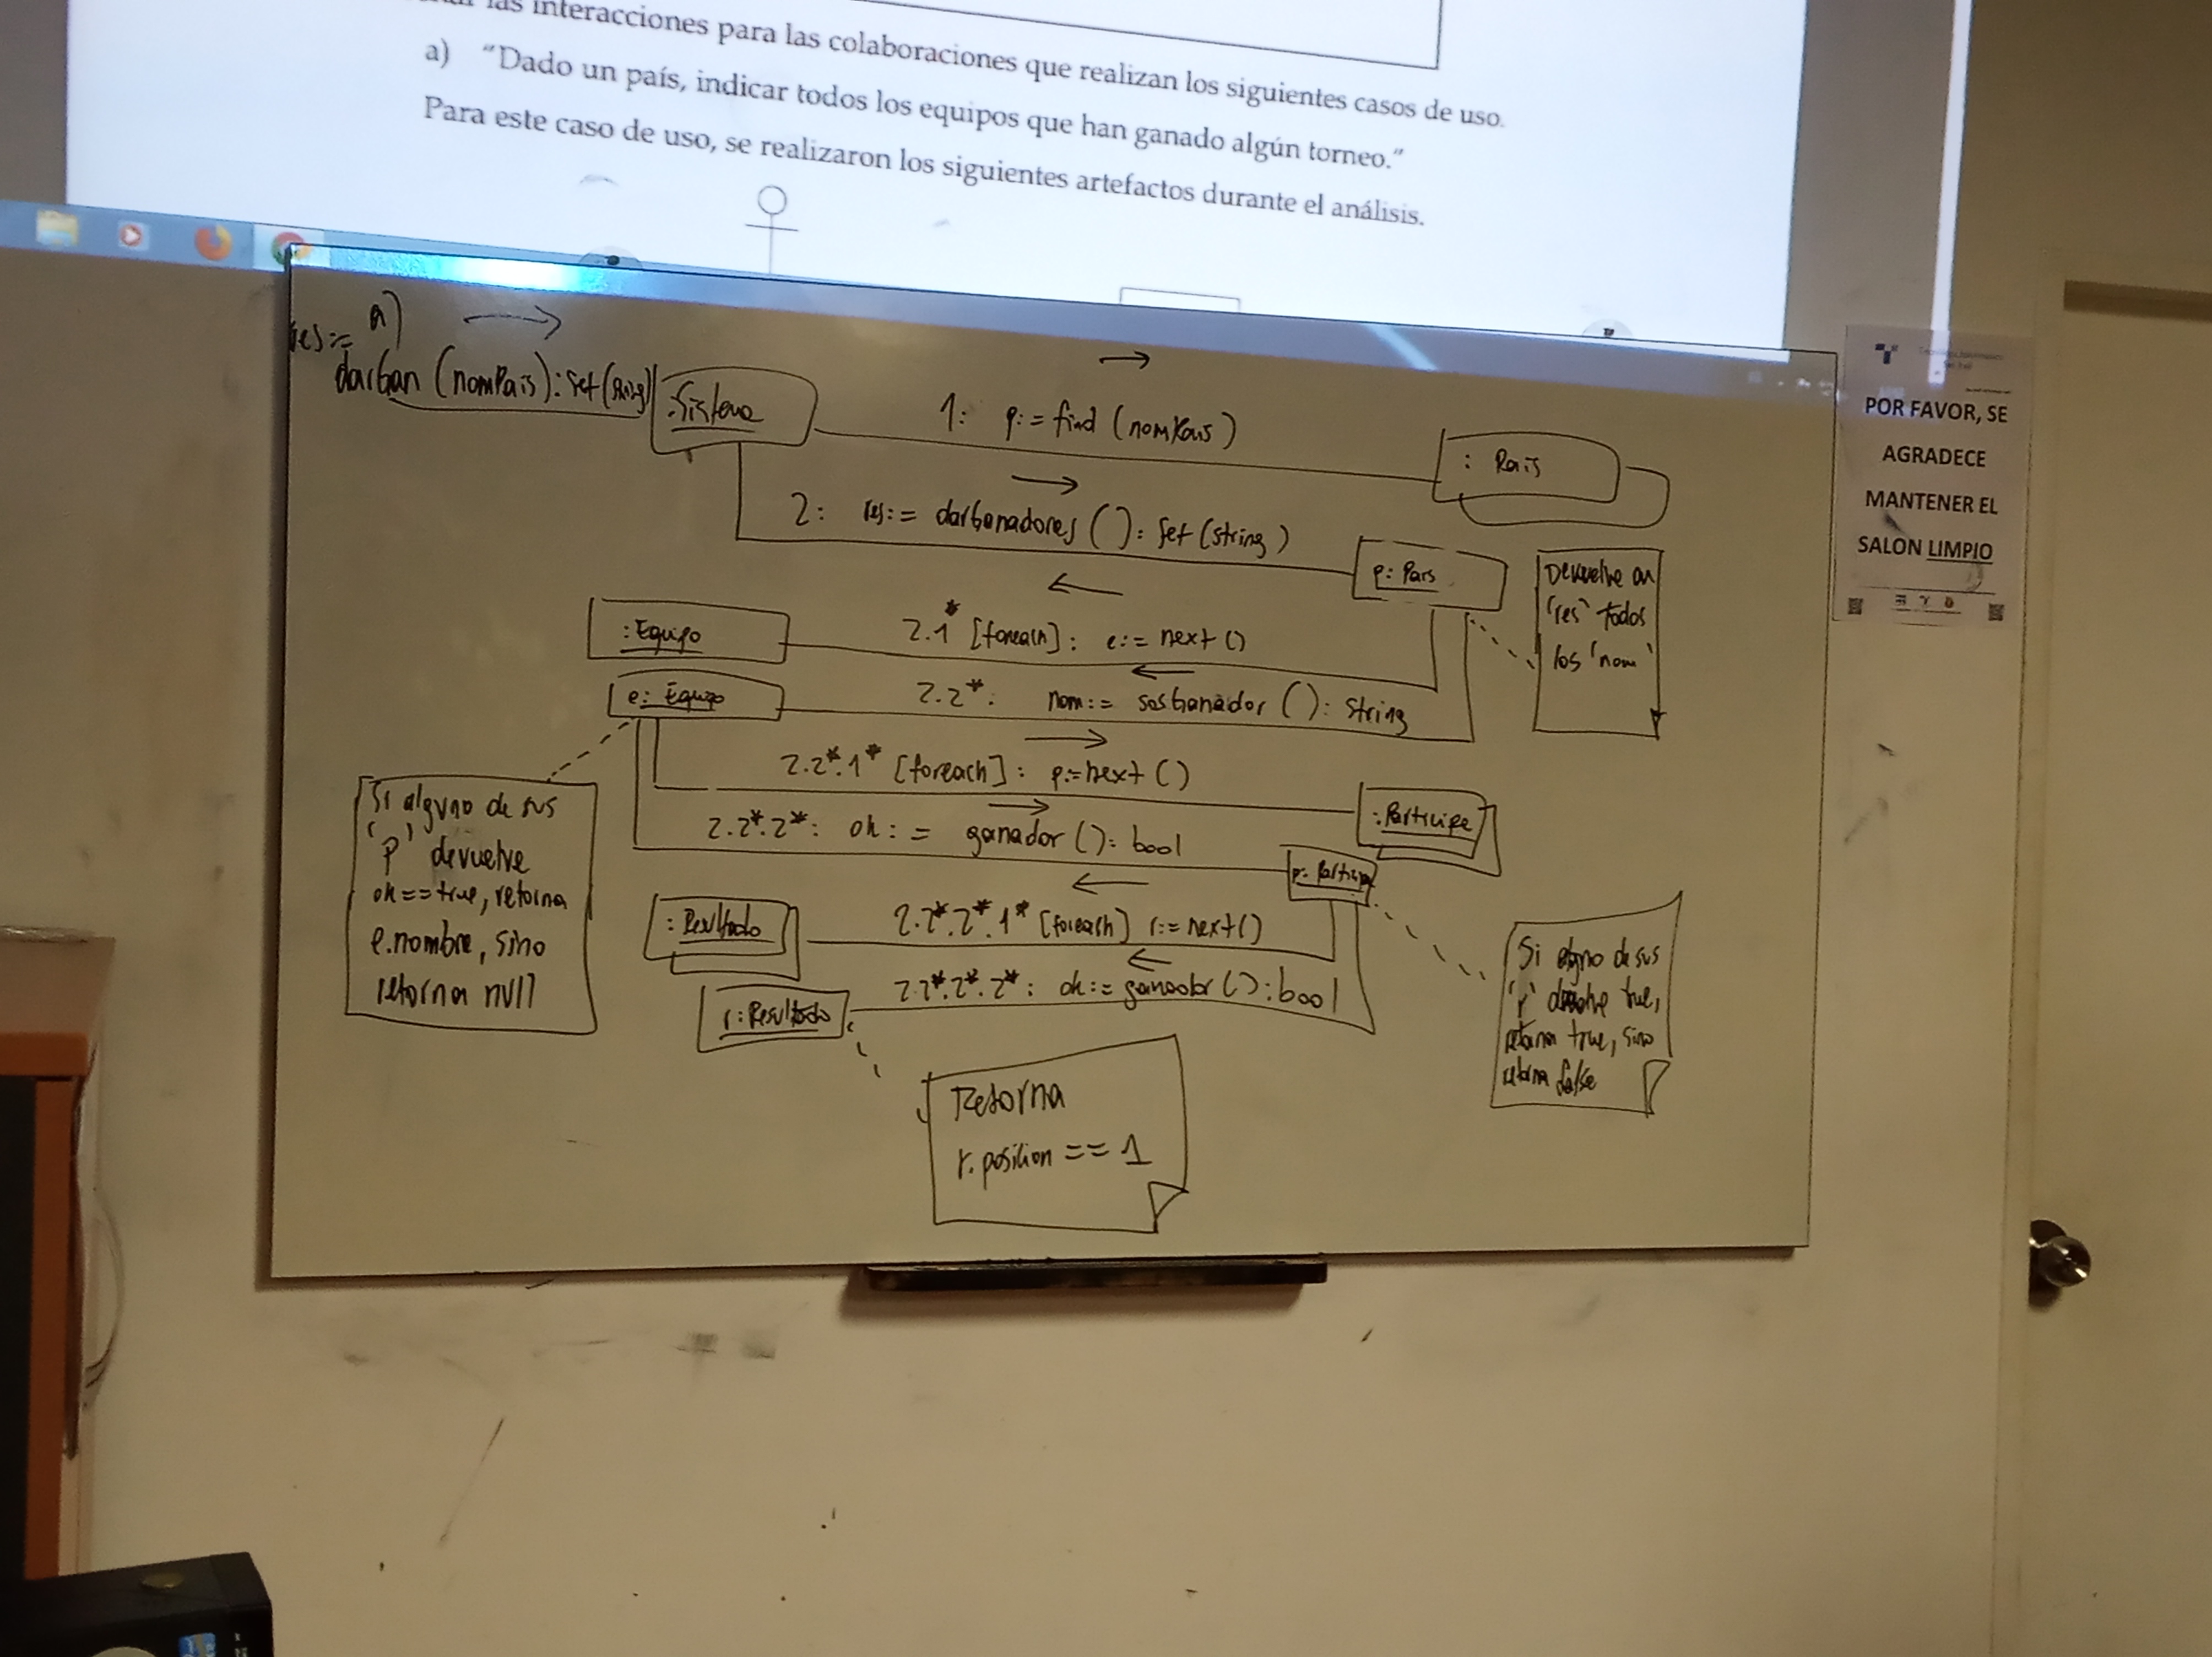 las interacciones para las colaboraciones que realizan los siguientes casos de uso.
a) "Dado un país, indicar todos los equipos que han ganado algún torneo."
Para este caso de uso, se realizaron los siguientes artefactos durante el análisis.
a)
res:=
darGan (nomPais): Set(String)
:Sistema
1: p:= find (nomPais)
: Pais
2: res:= darGanadores (): Set(string)
p: Pais
Devuelve en
'res' todos
los 'nom'
:Equipo
2.1* [foreach]: e:= next ()
e: Equipo
2.2*: nom:= sosGanador (): String
2.2*.1* [foreach]: p:=next ()
:Participa
2.2*.2*: ok:= ganador (): bool
p: Participa
Si alguno de sus
'p' devuelve
ok==true, retorna
e.nombre, sino
retorna null
:Resultado
2.2*.2*.1* [foreach] r:=next()
r:Resultado
2.2*.2*.2*: ok:=ganador():bool
Si alguno de sus
'r' devuelve true,
retorna true, sino
retorna false
Retorna
r.posicion == 1
POR FAVOR, SE
AGRADECE
MANTENER EL
SALON LIMPIO